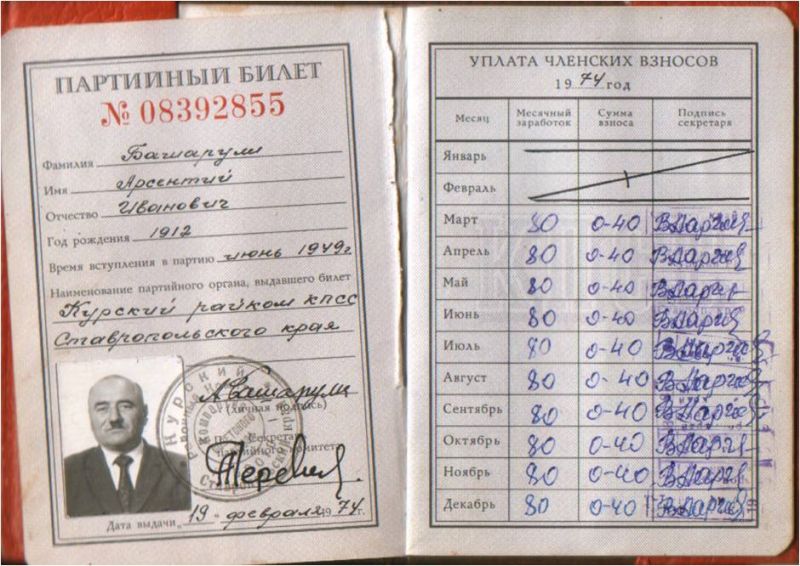 ПАРТИЙНЫЙ БИЛЕТ
№ 08392855
Фамилия Башарули
Имя Арсентий
Отчество Иванович
Год рождения 1912
Время вступления в партию июнь 1949г.
Наименование партийного органа, выдавшего билет
Курский райком КПСС
Ставропольского края
(личная подпись)
Дата выдачи „19 февраля 1974г.
УПЛАТА ЧЛЕНСКИХ ВЗНОСОВ
1974 год
Месяц Месячный заработок Сумма взноса Подпись секретаря
Январь
Февраль
Март 80 0-40
Апрель 80 0-40
Май 80 0-40
Июнь 80 0-40
Июль 80 0-40
Август 80 0-40
Сентябрь 80 0-40
Октябрь 80 0-40
Ноябрь 80 0-40
Декабрь 80 0-40